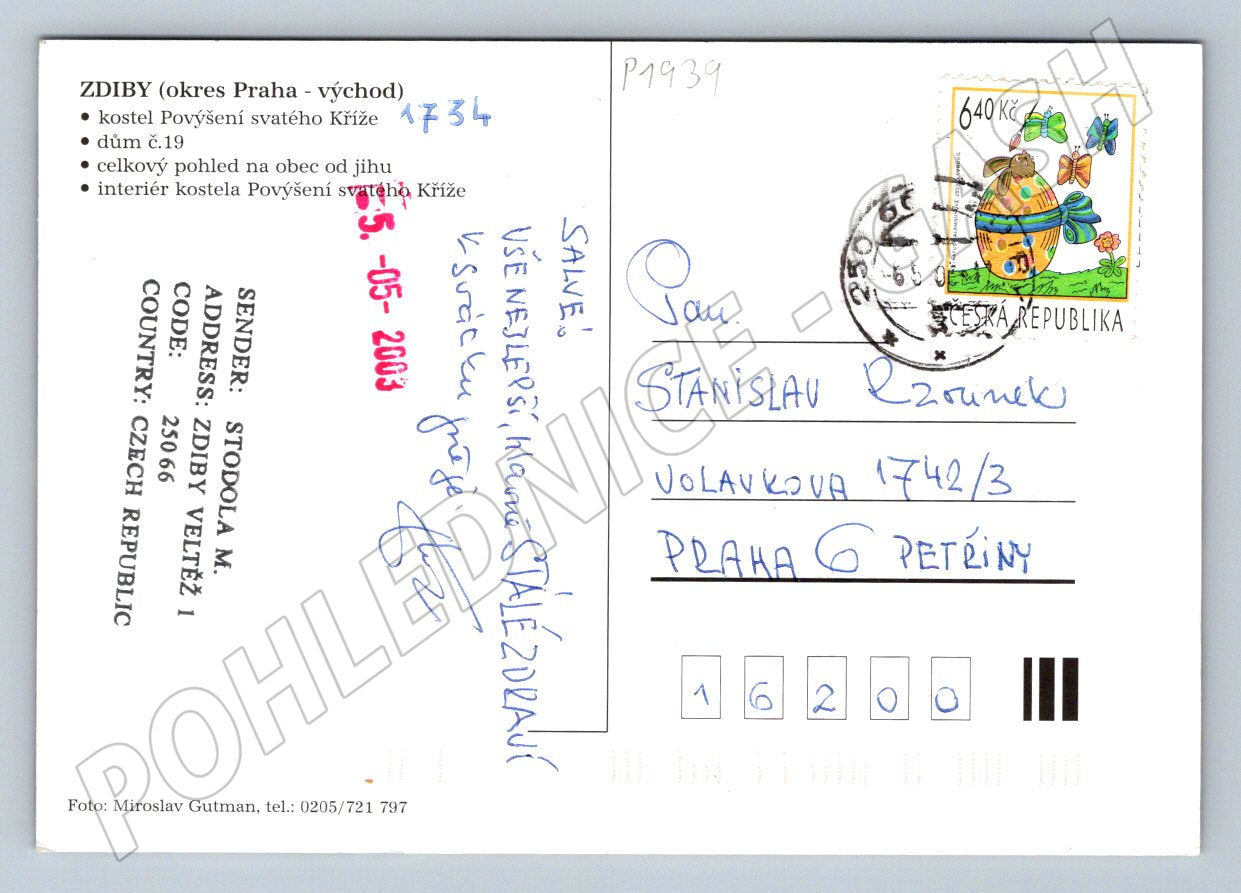 ZDIBY (okres Praha - východ)
• kostel Povýšení svatého Kříže 1734
• dům č.19
• celkový pohled na obec od jihu
• interiér kostela Povýšení svatého Kříže
5. -05- 2003
SENDER: STODOLA M.
ADDRESS: ZDIBY VELTĚŽ 1
CODE: 25066
COUNTRY: CZECH REPUBLIC
SALVE!
VŠE NEJLEPŠÍ, hlavně STÁLÉ ZDRAVÍ
k svátku přeje
Foto: Miroslav Gutman, tel.: 0205/721 797
P1939
6,40 Kč
ČESKÁ REPUBLIKA
250
Pan.
STANISLAV Rzounek
VOLAVKOVA 1742/3
PRAHA 6 PETŘINY
16200
POHLEDNICE - CASH